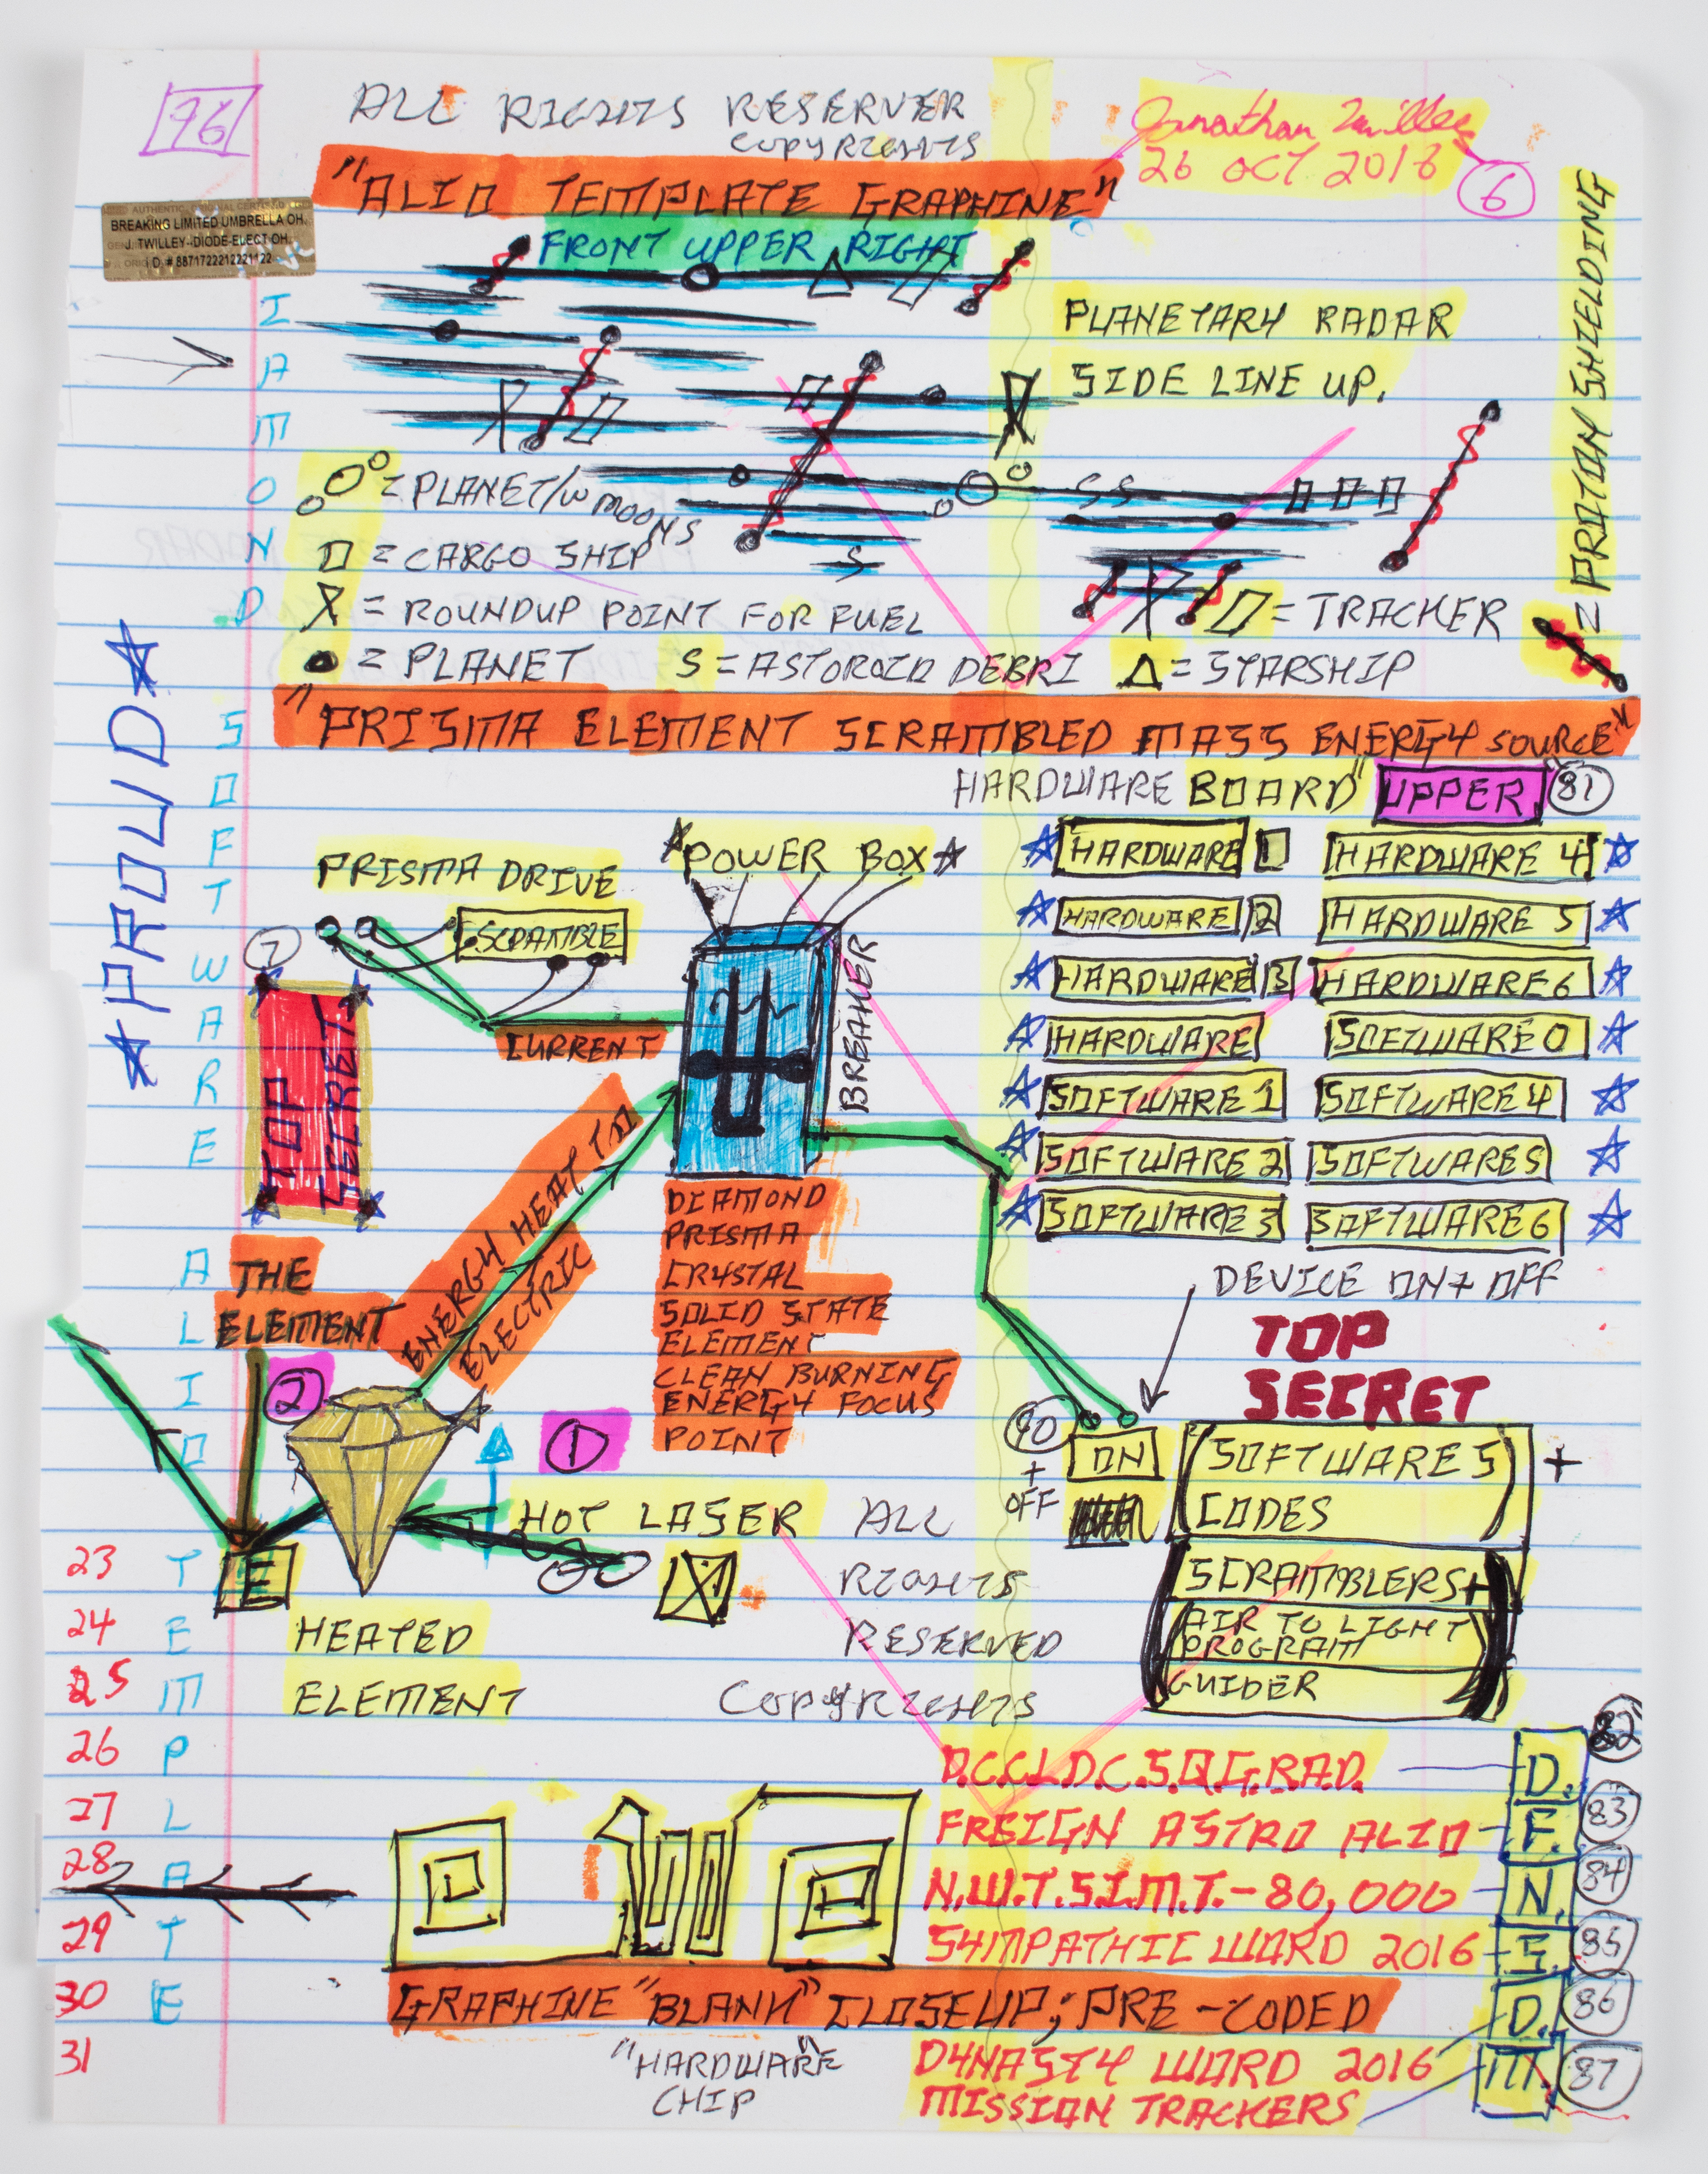 76
ALL RIGHTS RESERVER
COPYRIGHTS
Jonathan Twilley
26 OCT 2016
6
"ALIO TEMPLATE GRAPHINE"
BREAKING LIMITED UMBRELLA OH.
J. TWILLEY--DIODE-ELECT OH.
I.D. # 8871722212221122
FRONT UPPER RIGHT
PLANETARY RADAR
SIDE LINE UP.
= PROTION SHIELDING
= PLANET/W MOONS
S S
S
= CARGO SHIP
= ROUNDUP POINT FOR FUEL
= TRACKER
= PLANET S = ASTOROID DEBRI = STARSHIP
"PRISMA ELEMENT SCRAMBLED MASS ENERGY SOURCE"
HARDWARE BOARD" UPPER. 81
PROLID
DIAMOND SOFTWARE ALIO TEMPLATE
PRISMA DRIVE
SCRAMBLE
POWER BOX
7
TOP SECRET
CURRENT
BREAKER
HARDWARE 1 HARDWARE 4
HARDWARE 2 HARDWARE 5
HARDWARE 3 HARDWARE 6
HARDWARE SOFTWARE 0
SOFTWARE 1 SOFTWARE 4
SOFTWARE 2 SOFTWARE 5
SOFTWARE 3 SOFTWARE 6
ENERGY HEAT TO
ELECTRIC
DIAMOND
PRISMA
CRYSTAL
SOLID STATE
ELEMENT
CLEAN BURNING
ENERGY FOCUS
POINT
THE
ELEMENT
2
1
DEVICE ON + OFF
TOP
SECRET
90
ON
+
OFF
(SOFTWARE 5) +
CODES
SCRAMBLERS +
AIR TO LIGHT
PROGRAM
GUIDER
HOT LASER
E
HEATED
ELEMENT
ALL
RIGHTS
RESERVED
COPYRIGHTS
23
24
25
26
27
28
29
30
31
D.C.C.L.D.C.S.Q.G.R.A.D. D. 82
FREIGN ASTRO ALIO F. 83
N.W.T.S.I.M.T.-80,000 N. 84
SYMPATHIC WORD 2016 S. 85
D. 86
GRAPHINE "BLANK" CLOSEUP; PRE-CODED
"HARDWARE"
CHIP
DYNASTY WORD 2016
MISSION TRACKERS
M. 87